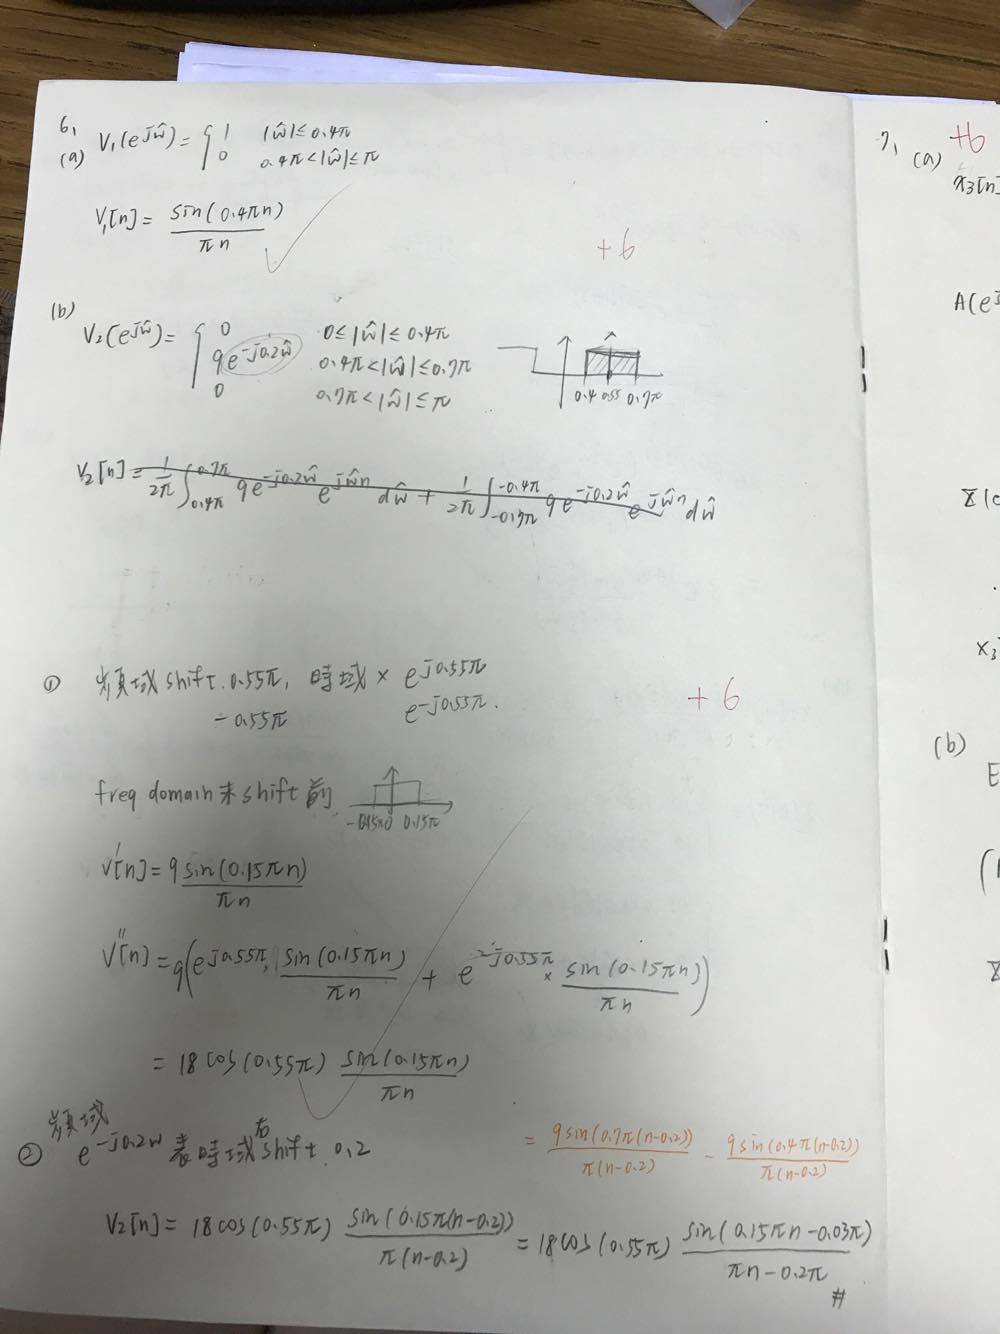 6.
(a) V₁(e^jŵ) = { 1 |ŵ| ≤ 0.4π
0 0.4π < |ŵ| ≤ π
V₁[n] = sin(0.4πn) / πn
+6
(b)
V₂(e^jŵ) = { 0 0 ≤ |ŵ| ≤ 0.4π
9e^-j0.2ŵ 0.4π < |ŵ| ≤ 0.7π
0 0.7π < |ŵ| ≤ π
0.4 0.55 0.7π
V₂[n] = 1/2π ∫_0.4π^0.7π 9e^-j0.2ŵ e^jŵn dŵ + 1/2π ∫_-0.7π^-0.4π 9e^-j0.2ŵ e^jŵn dŵ
① 頻域 shift 0.55π, 時域 × e^j0.55π
-0.55π e^-j0.55π.
+6
freq domain 未 shift 前
-0.15π 0 0.15π
V'[n] = 9 sin(0.15πn) / πn
V''[n] = 9(e^j0.55π · sin(0.15πn) / πn + e^-j0.55π × sin(0.15πn) / πn)
= 18 cos(0.55π) sin(0.15πn) / πn
頻域
② e^-j0.2w 表時域右 shift 0.2
= 9sin(0.7π(n-0.2)) / π(n-0.2) - 9sin(0.4π(n-0.2)) / π(n-0.2)
V₂[n] = 18cos(0.55π) sin(0.15π(n-0.2)) / π(n-0.2) = 18cos(0.55π) sin(0.15πn-0.03π) / πn-0.2π
#
7. (a) +6
x₃[n]
(b)